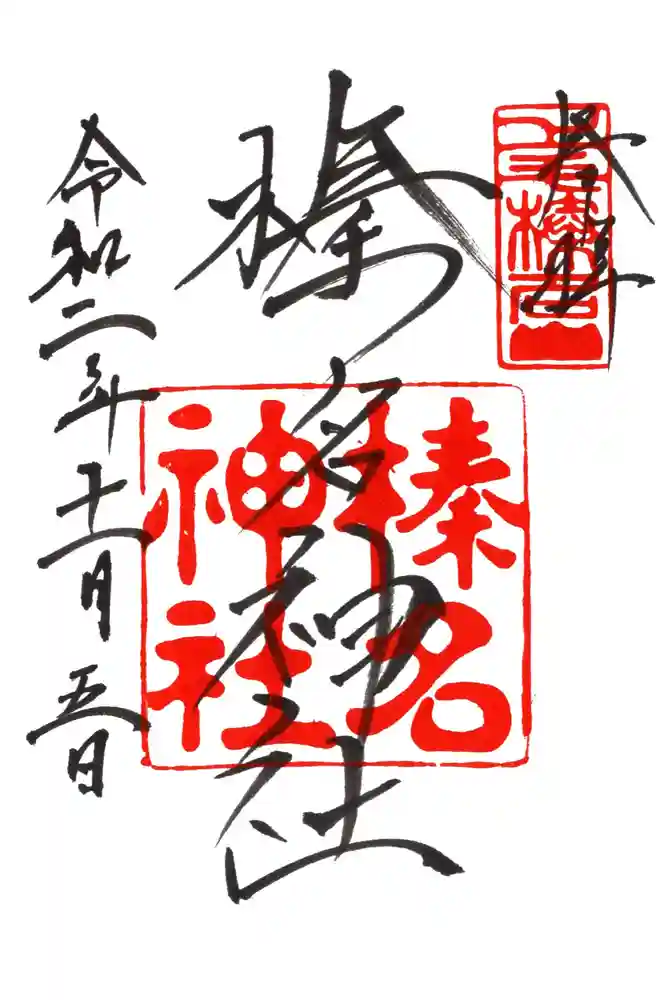 奉拝
榛名神社
榛名
神社
令和二年十一月五日